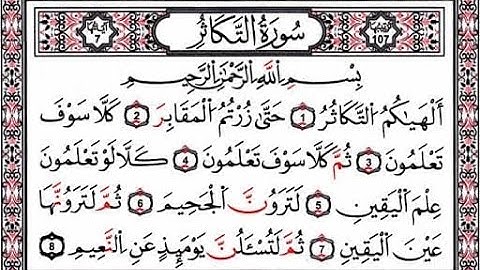 107 سُورَةُ التَّكَاثُرِ 7
بِسْمِ اللَّهِ الرَّحْمَٰنِ الرَّحِيمِ
أَلْهَىٰكُمُ التَّكَاثُرُ 1 حَتَّىٰ زُرْتُمُ الْمَقَابِرَ 2 كَلَّا سَوْفَ
تَعْلَمُونَ 3 ثُمَّ كَلَّا سَوْفَ تَعْلَمُونَ 4 كَلَّا لَوْ تَعْلَمُونَ
عِلْمَ الْيَقِينِ 5 لَتَرَوُنَّ الْجَحِيمَ 6 ثُمَّ لَتَرَوُنَّهَا
عَيْنَ الْيَقِينِ 7 ثُمَّ لَتُسْـَٔلُنَّ يَوْمَئِذٍ عَنِ النَّعِيمِ 8